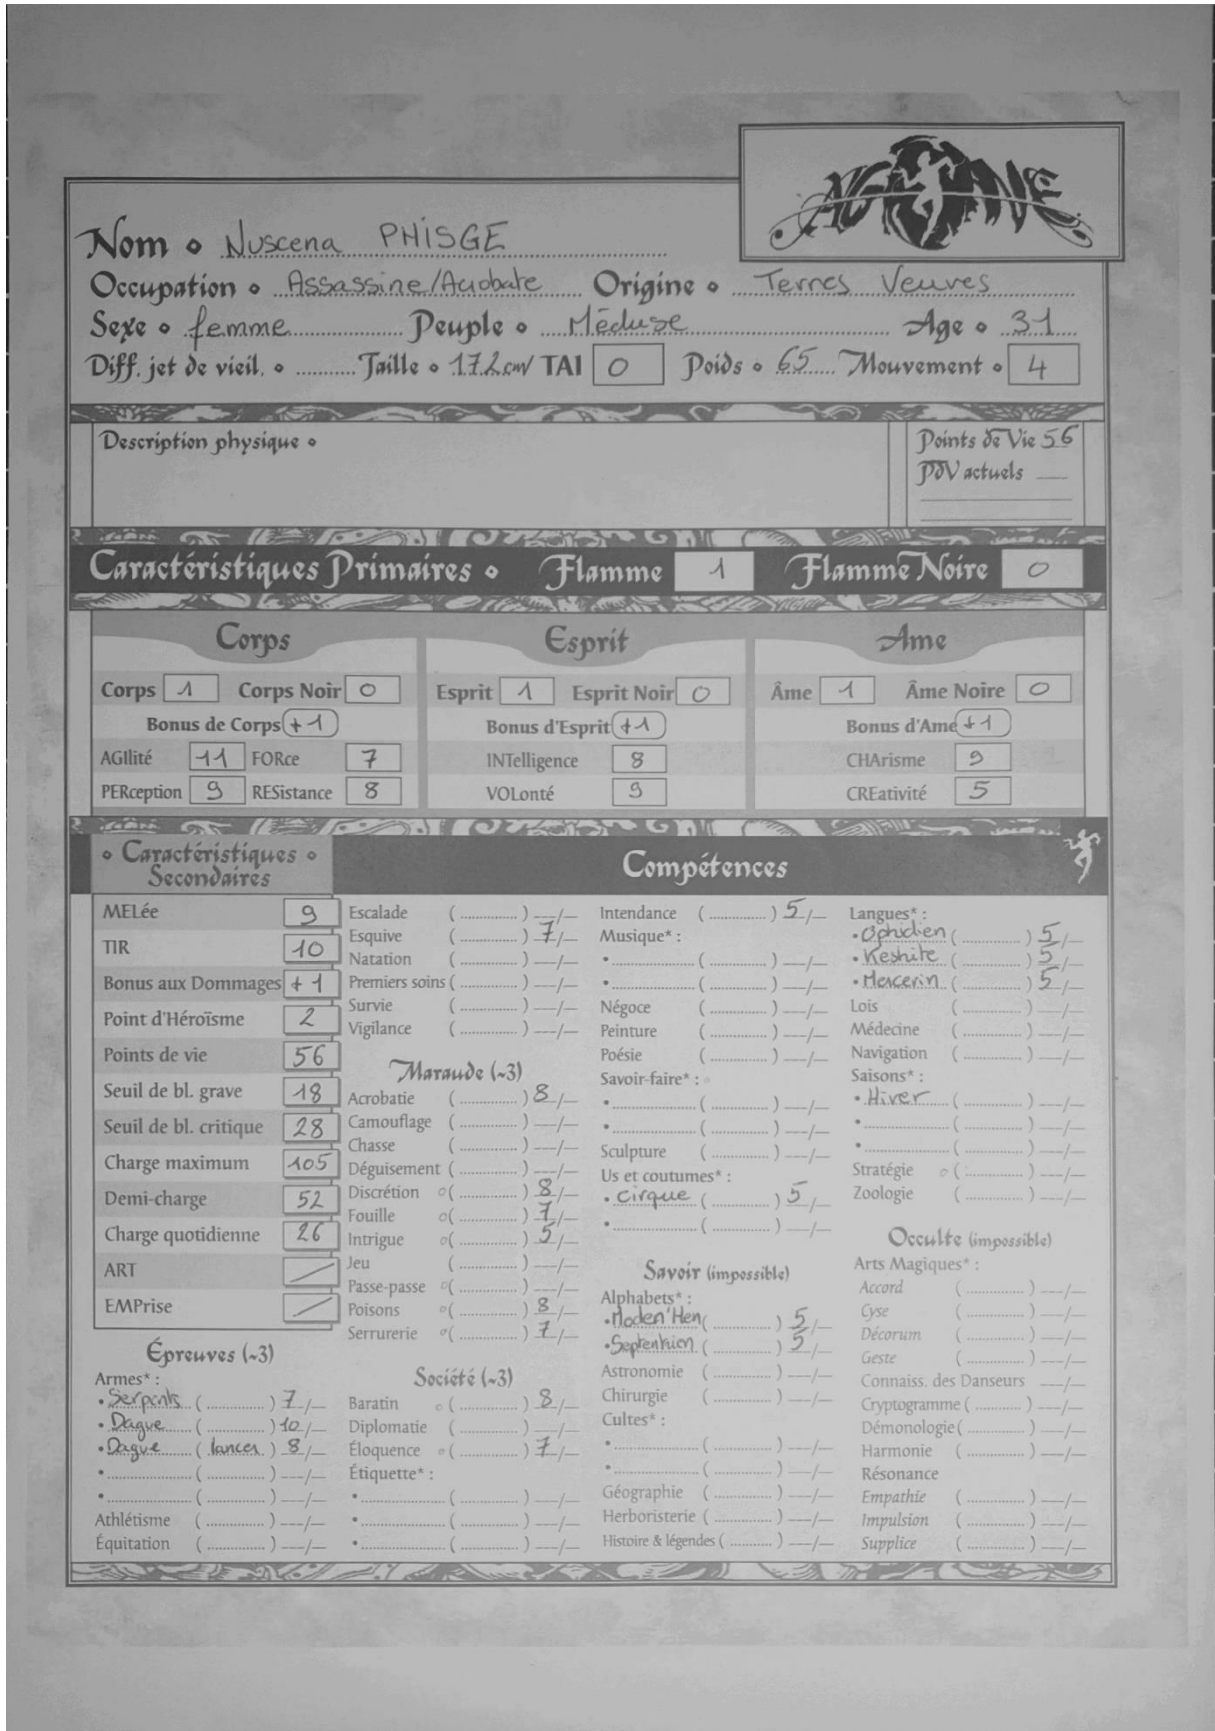 AGONE
Nom ∘ Nuscena PHISGE
Occupation ∘ Assassine/Acrobate Origine ∘ Terres Veuves
Sexe ∘ femme Peuple ∘ Méduse Age ∘ 31
Diff. jet de vieil. ∘ Taille ∘ 172cm TAI 0 Poids ∘ 65 Mouvement ∘ 4
Description physique ∘
Points de Vie 56
PdV actuels
Caractéristiques Primaires ∘ Flamme 1 Flamme Noire 0
Corps Esprit Ame
Corps 1 Corps Noir 0 Esprit 1 Esprit Noir 0 Âme 1 Âme Noire 0
Bonus de Corps +1 Bonus d'Esprit +1 Bonus d'Ame +1
AGIlité 11 FORce 7 INTelligence 8 CHArisme 9
PERception 9 RESistance 8 VOLonté 9 CREativité 5
∘ Caractéristiques ∘
Secondaires
MELée 9
TIR 10
Bonus aux Dommages +1
Point d'Héroïsme 2
Points de vie 56
Seuil de bl. grave 18
Seuil de bl. critique 28
Charge maximum 105
Demi-charge 52
Charge quotidienne 26
ART /
EMPrise /
Épreuves (~3)
Armes* :
• Serpents (.............) 7/—
• Dague (.............) 10/—
• Dague (lancer) 8/—
• (.............) —/—
• (.............) —/—
Athlétisme (.............) —/—
Équitation (.............) —/—
Compétences
Escalade (.............) —/—
Esquive (.............) 7/—
Natation (.............) —/—
Premiers soins (.............) —/—
Survie (.............) —/—
Vigilance (.............) —/—
Maraude (~3)
Acrobatie (.............) 8/—
Camouflage (.............) —/—
Chasse (.............) —/—
Déguisement (.............) —/—
Discrétion ∘(.............) 8/—
Fouille ∘(.............) 7/—
Intrigue ∘(.............) 5/—
Jeu (.............) —/—
Passe-passe ∘(.............) —/—
Poisons ∘(.............) 8/—
Serrurerie ∘(.............) 7/—
Société (~3)
Baratin ∘(.............) 8/—
Diplomatie (.............) —/—
Éloquence ∘(.............) 7/—
Étiquette* :
• (.............) —/—
• (.............) —/—
• (.............) —/—
Intendance (.............) 5/—
Musique* :
• (.............) —/—
• (.............) —/—
Négoce (.............) —/—
Peinture (.............) —/—
Poésie (.............) —/—
Savoir-faire* :
• (.............) —/—
• (.............) —/—
Sculpture (.............) —/—
Us et coutumes* :
• cirque (.............) 5/—
• (.............) —/—
Savoir (impossible)
Alphabets* :
• Moden'Hen (.............) 5/—
• Septentrion (.............) 5/—
Astronomie (.............) —/—
Chirurgie (.............) —/—
Cultes* :
• (.............) —/—
• (.............) —/—
Géographie (.............) —/—
Herboristerie (.............) —/—
Histoire & légendes (.............) —/—
Langues* :
• Ophidien (.............) 5/—
• Keshite (.............) 5/—
• Mercerin (.............) 5/—
Lois (.............) —/—
Médecine (.............) —/—
Navigation (.............) —/—
Saisons* :
• Hiver (.............) —/—
• (.............) —/—
• (.............) —/—
Stratégie ∘(.............) —/—
Zoologie (.............) —/—
Occulte (impossible)
Arts Magiques* :
Accord (.............) —/—
Cyse (.............) —/—
Décorum (.............) —/—
Geste (.............) —/—
Connaiss. des Danseurs —/—
Cryptogramme (.............) —/—
Démonologie (.............) —/—
Harmonie (.............) —/—
Résonance
Empathie (.............) —/—
Impulsion (.............) —/—
Supplice (.............) —/—